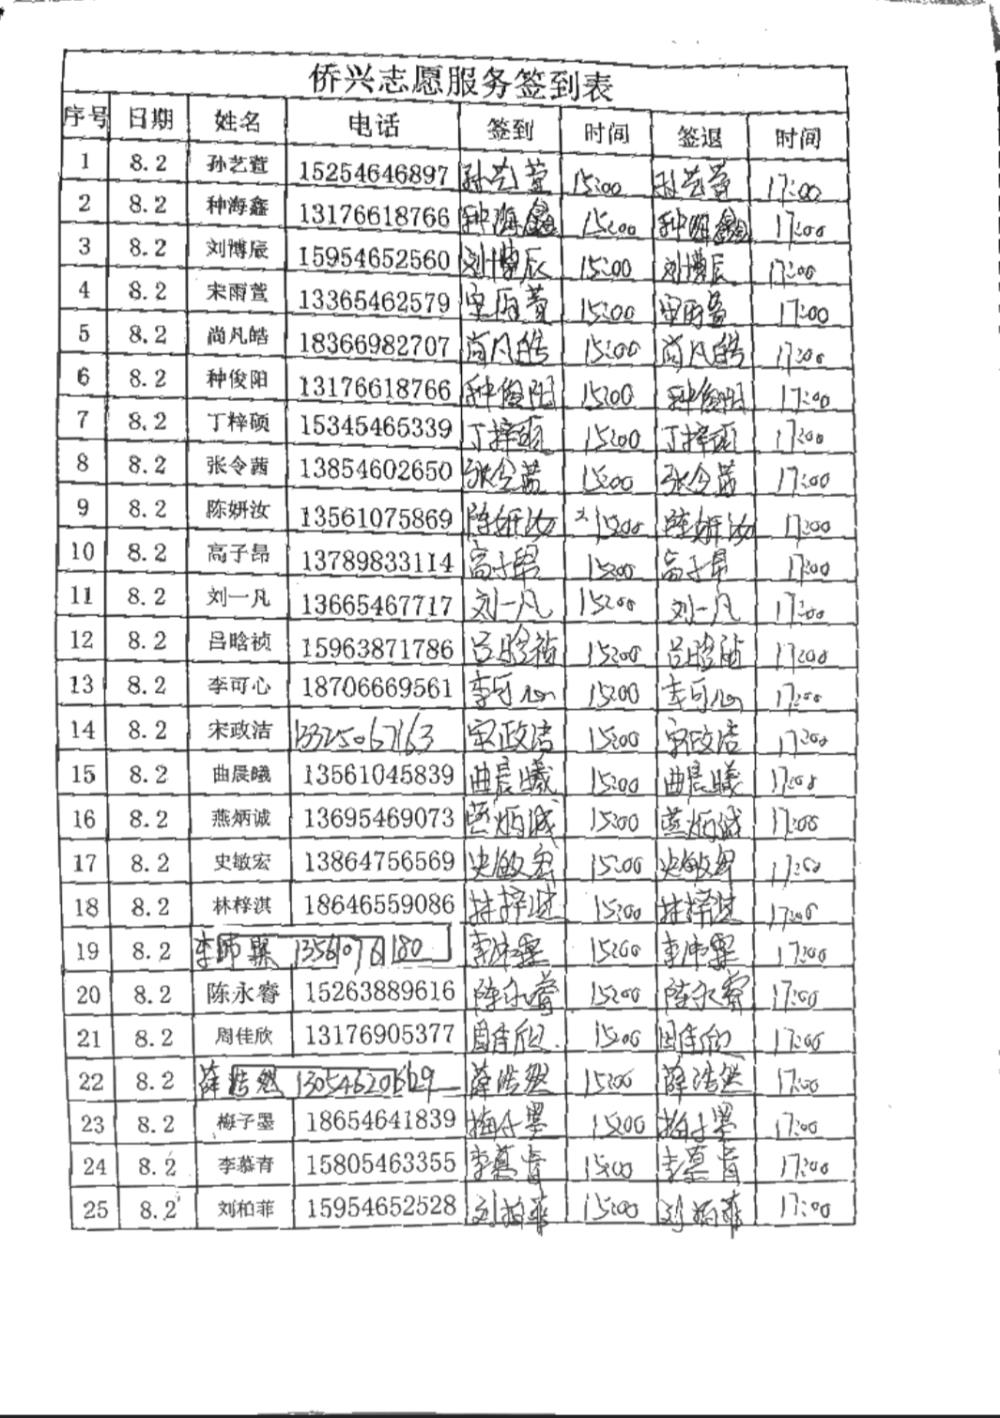 侨兴志愿服务签到表
序号 日期 姓名 电话 签到 时间 签退 时间
1 8.2 孙艺萱 15254646897 孙艺萱 15:00 孙艺萱 17:00
2 8.2 种海鑫 13176618766 种海鑫 15:00 种海鑫 17:00
3 8.2 刘博辰 15954652560 刘博辰 15:00 刘博辰 17:00
4 8.2 宋雨萱 13365462579 宋雨萱 15:00 宋雨萱 17:00
5 8.2 尚凡皓 18366982707 尚凡皓 15:00 尚凡皓 17:00
6 8.2 种俊阳 13176618766 种俊阳 15:00 种俊阳 17:00
7 8.2 丁梓硕 15345465339 丁梓硕 15:00 丁梓硕 17:00
8 8.2 张令茜 13854602650 张令茜 15:00 张令茜 17:00
9 8.2 陈妍汝 13561075869 陈妍汝 15:00 陈妍汝 17:00
10 8.2 高子昂 13789833114 高子昂 15:00 高子昂 17:00
11 8.2 刘一凡 13665467717 刘一凡 15:00 刘一凡 17:00
12 8.2 吕晗祯 15963871786 吕晗祯 15:00 吕晗祯 17:00
13 8.2 李可心 18706669561 李可心 15:00 李可心 17:00
14 8.2 宋政洁 13325067163 宋政洁 15:00 宋政洁 17:00
15 8.2 曲晨曦 13561045839 曲晨曦 15:00 曲晨曦 17:00
16 8.2 燕炳诚 13695469073 燕炳诚 15:00 燕炳诚 17:00
17 8.2 史敏宏 13864756569 史敏宏 15:00 史敏宏 17:00
18 8.2 林梓淇 18646559086 林梓淇 15:00 林梓淇 17:00
19 8.2 13561076180 15:00 17:00
20 8.2 陈永睿 15263889616 陈永睿 15:00 陈永睿 17:00
21 8.2 周佳欣 13176905377 周佳欣 15:00 周佳欣 17:00
22 8.2 薛浩然 薛浩然 15:00 薛浩然 17:00
23 8.2 梅子墨 18654641839 梅子墨 15:00 梅子墨 17:00
24 8.2 李慕青 15805463355 李慕青 15:00 李慕青 17:00
25 8.2 刘柏菲 15954652528 刘柏菲 15:00 刘柏菲 17:00